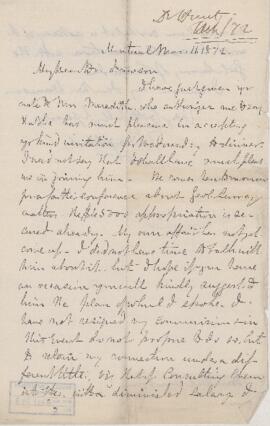 Dr Hunt
/72
Montreal Mar. 11 1872
My dear Dr. Dawson
I have just given your
note to Mr. Meredith, who authorizes me to say
that he has much pleasure in accepting
your kind invitation for Wednesday, to dinner.
I need not say that I should have much pleas
ure in joining him. He comes down tomorrow
for a further conference about Geol. Survey
matters. The $15000 appropriation is se-
cured already. My own affair has not yet
come up. I did not have time to talk with
him about it, but I hope if you have
an occasion you will kindly suggest to
him the plan of which I spoke. I
have not resigned my commission &
in this event do not propose to do so, but
to retain my connection under a dif-
ferent title, viz that of Consulting Chem
ist &c with a diminished salary I